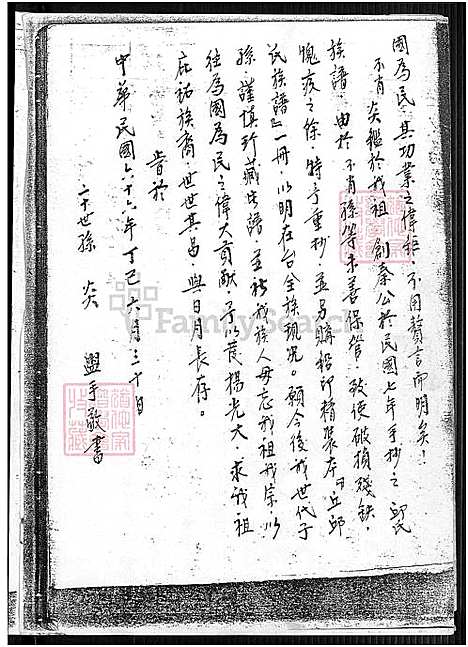 國為民，其功業之偉鉅，不用贅言而明矣！
不肖炎鑑於我祖創秦公於民國七年手抄之邱氏
族譜，由於不肖孫等未善保管，致使破損殘缺，
愧疚之餘，特予重抄，並另購鉛印精裝本『丘邱
氏族譜』一冊，以明在台全族現況。願今後我世代子
孫謹慎珍藏此譜，並祈我族人毋忘我祖我宗以
往為國為民之偉大貢獻，予以發揚光大，求我祖
庇祐族裔，世世其昌，與日月長存。
旨於
中華民國六十六年丁巳六月三十日
二十世孫 炎 盥手敬書
FamilySearch